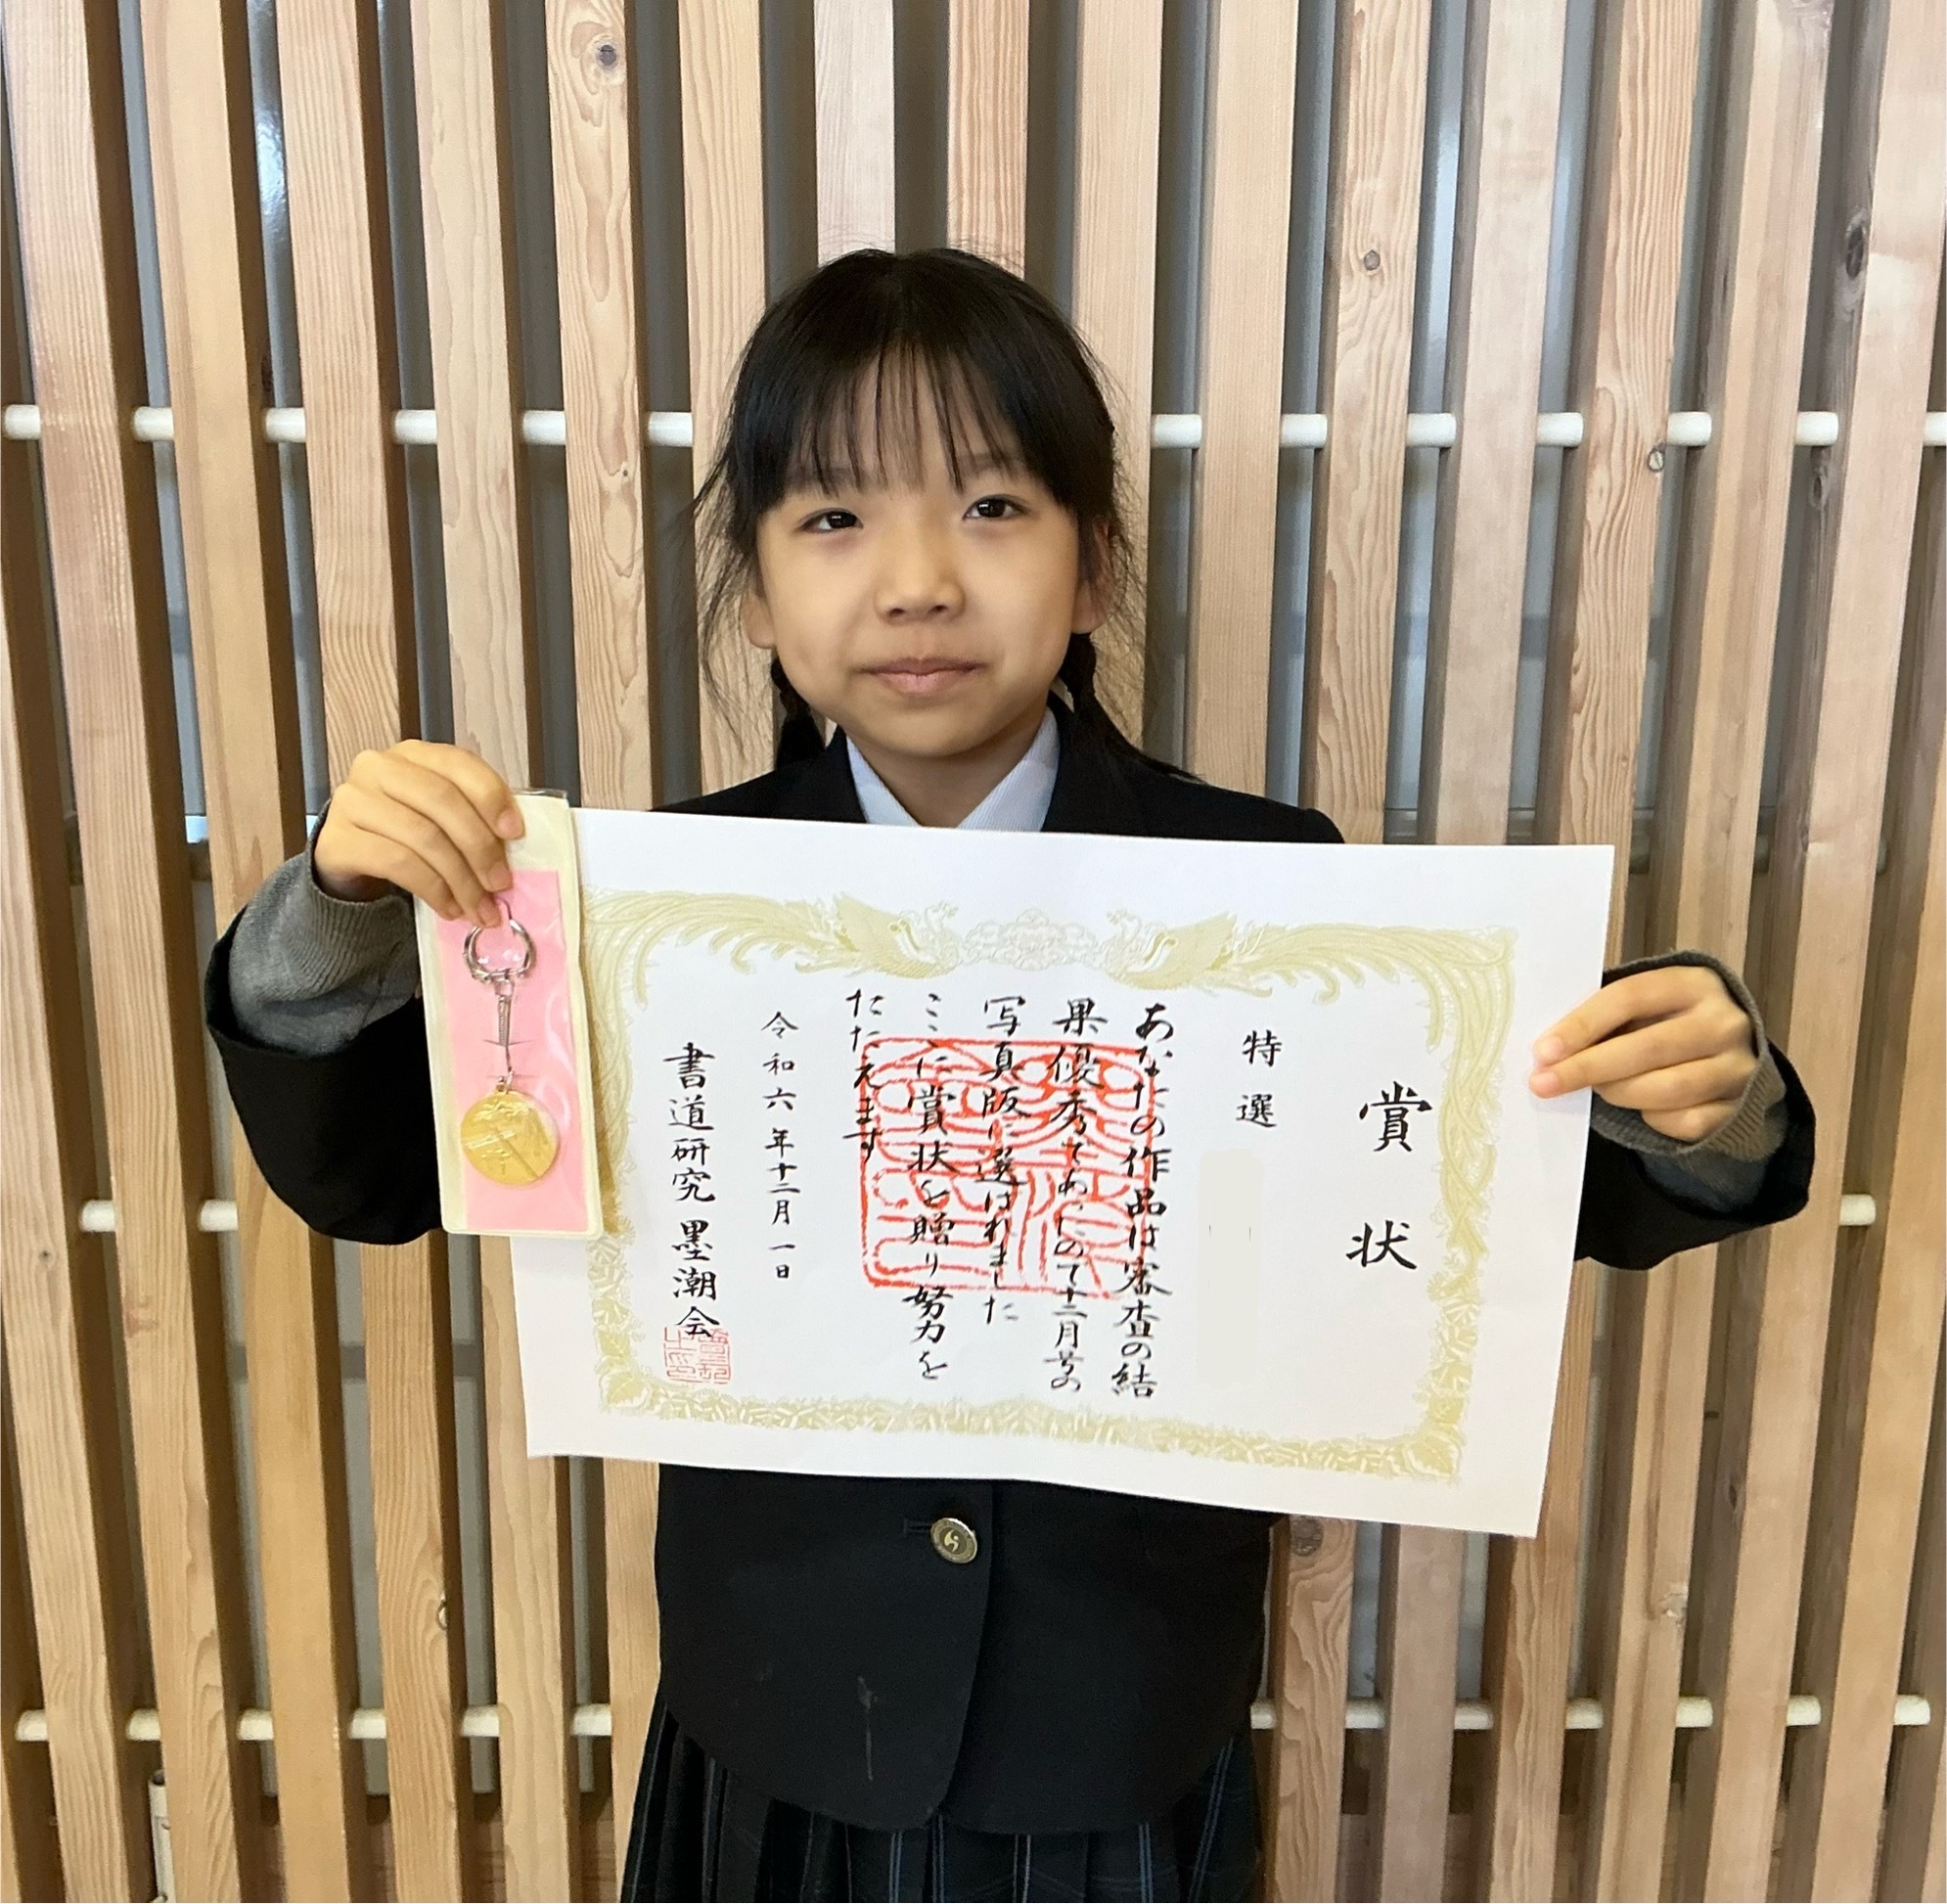 賞状
特選
あなたの作品は審査の結
果優秀であったので十二月号の
写真版に選ばれました
ここに賞状を贈り努力を
たたえます
令和六年十二月一日
書道研究 墨潮会